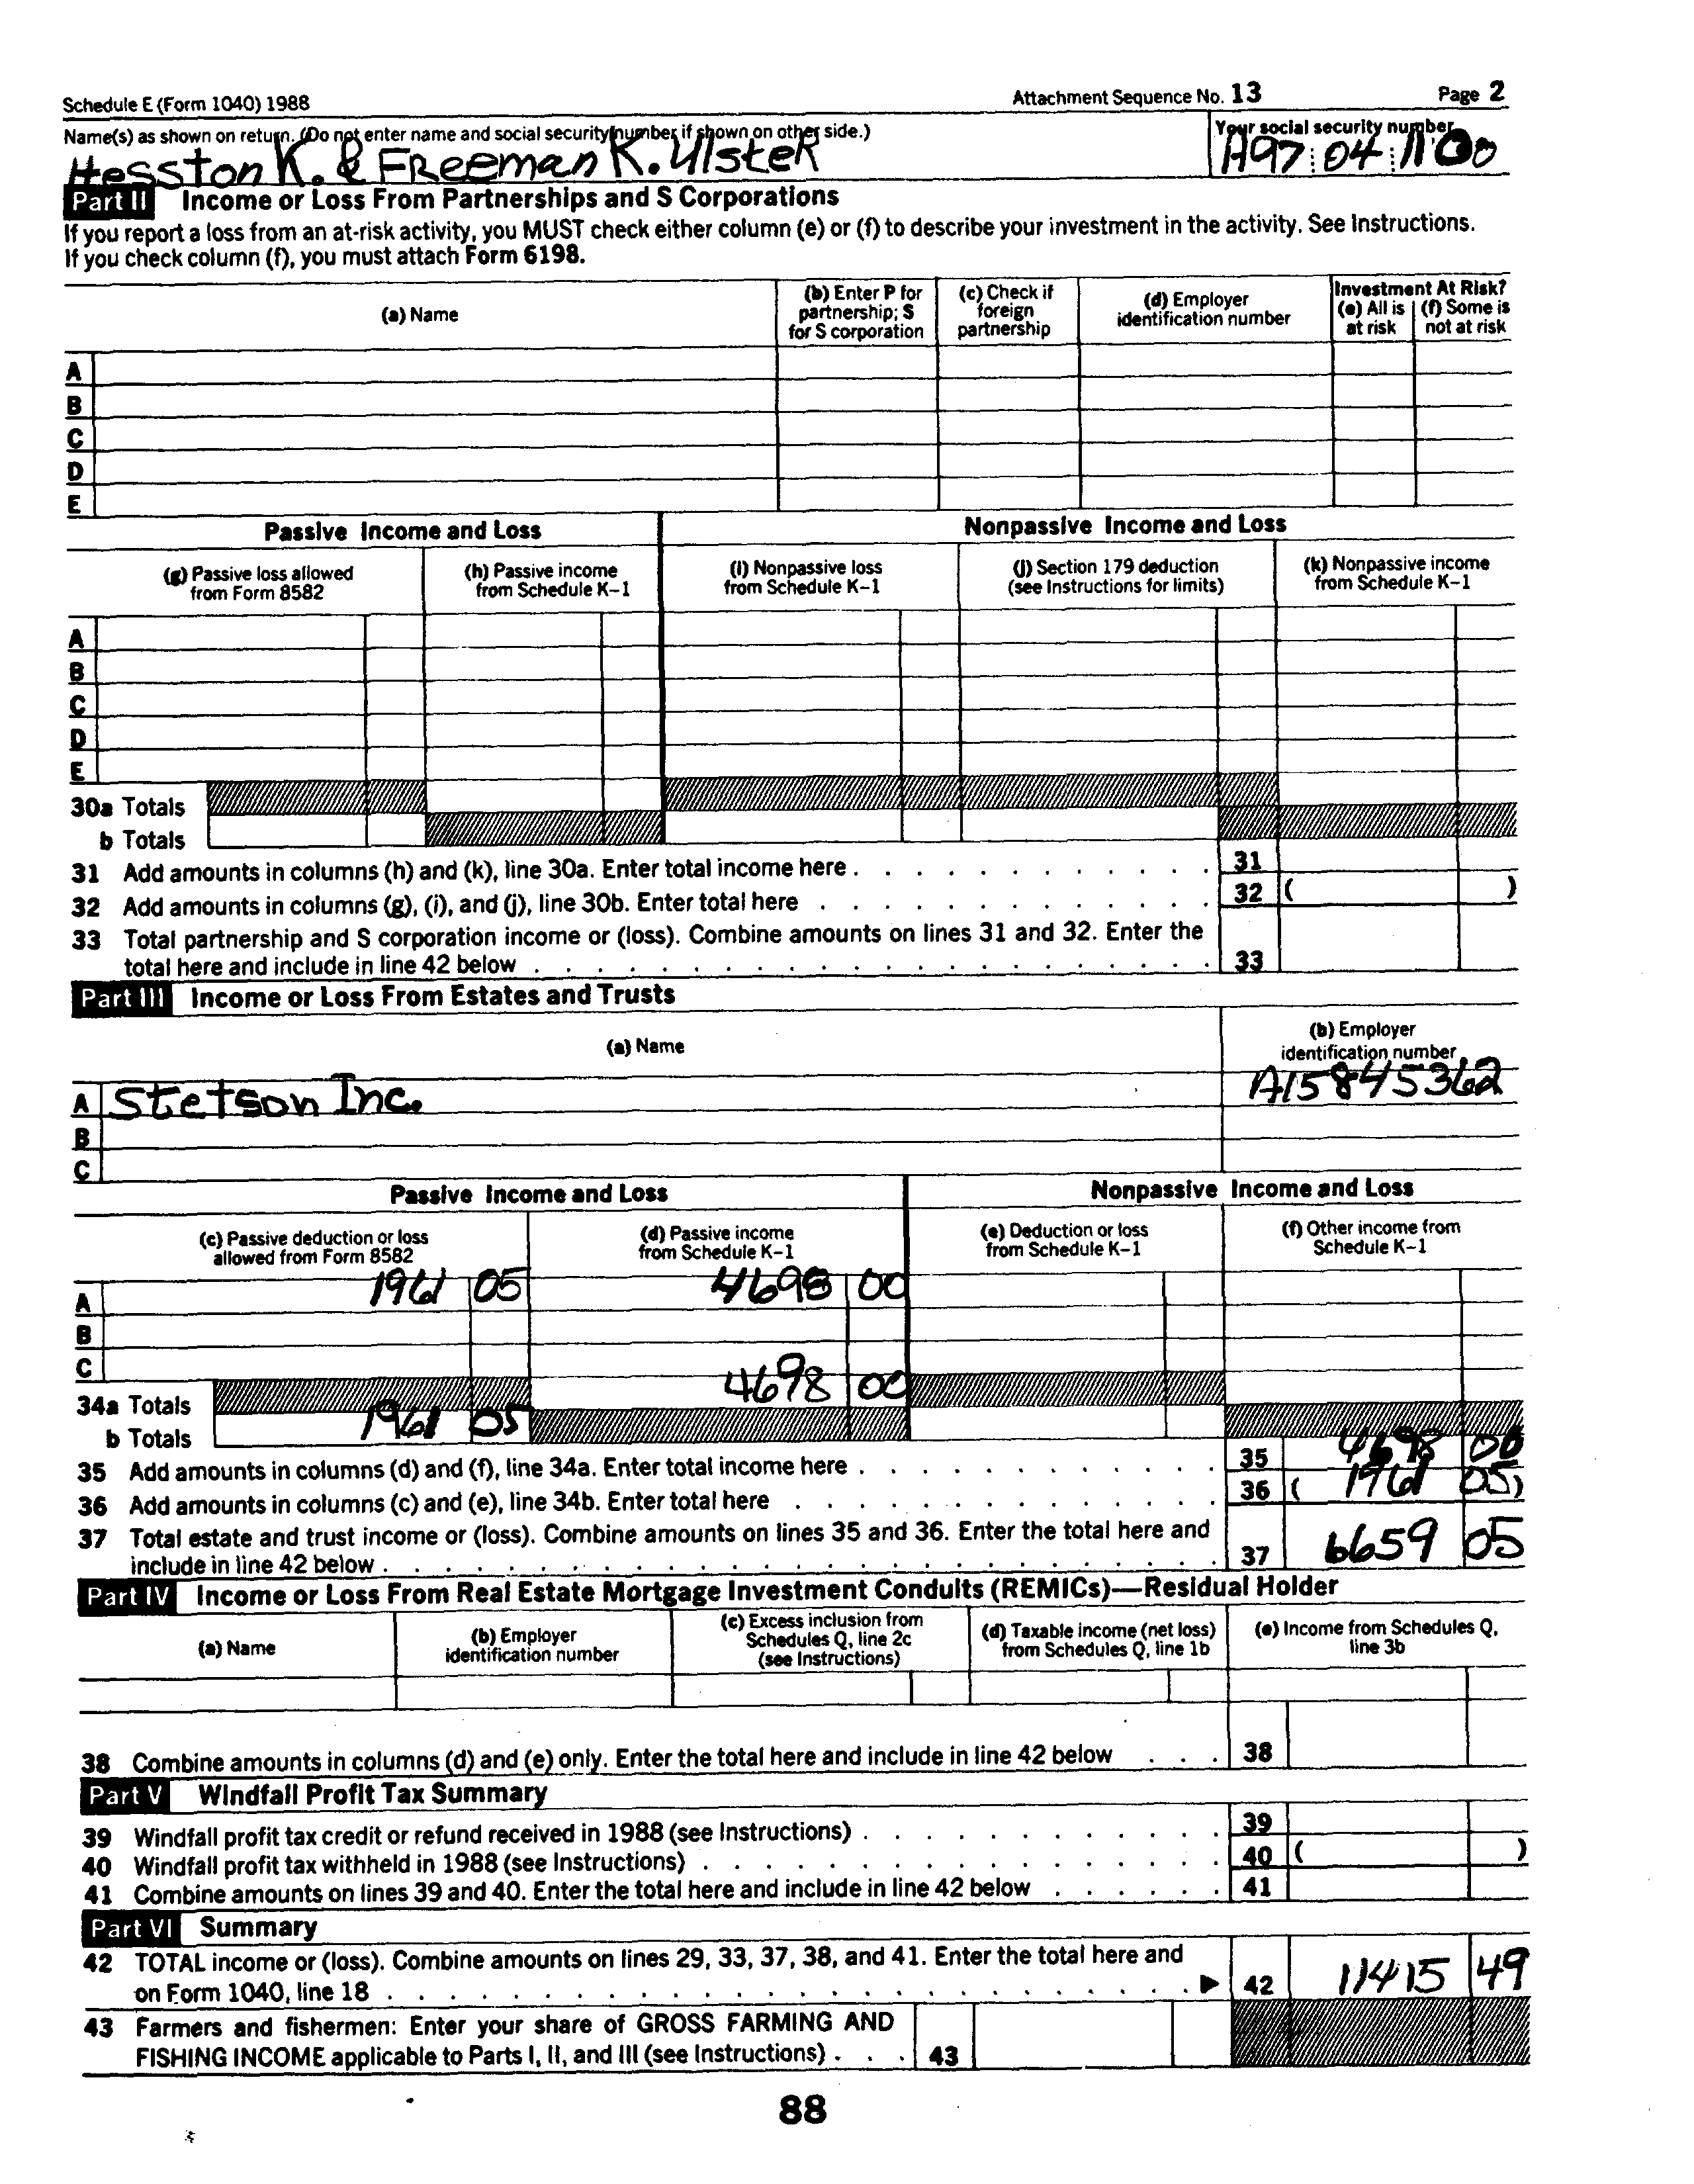 Schedule E (Form 1040) 1988 Attachment Sequence No. 13 Page 2
Name(s) as shown on return. (Do not enter name and social security number if shown on other side.) Your social security number
Hesston K. & Freeman K. Ulster A97 04 1100
Part II Income or Loss From Partnerships and S Corporations
If you report a loss from an at-risk activity, you MUST check either column (e) or (f) to describe your investment in the activity. See Instructions.
If you check column (f), you must attach Form 6198.
(a) Name
(b) Enter P for partnership; S for S corporation
(c) Check if foreign partnership
(d) Employer identification number
Investment At Risk?
(e) All is at risk
(f) Some is not at risk
A
B
C
D
E
Passive Income and Loss Nonpassive Income and Loss
(g) Passive loss allowed from Form 8582
(h) Passive income from Schedule K–1
(i) Nonpassive loss from Schedule K–1
(j) Section 179 deduction (see Instructions for limits)
(k) Nonpassive income from Schedule K–1
A
B
C
D
E
30a Totals
b Totals
31 Add amounts in columns (h) and (k), line 30a. Enter total income here . . . . . . . . . . . . 31
32 Add amounts in columns (g), (i), and (j), line 30b. Enter total here . . . . . . . . . . . . . 32 ( )
33 Total partnership and S corporation income or (loss). Combine amounts on lines 31 and 32. Enter the
total here and include in line 42 below . . . . . . . . . . . . . . . . . . . . . . . 33
Part III Income or Loss From Estates and Trusts
(a) Name
(b) Employer identification number
A Stetson Inc. A15845362
B
C
Passive Income and Loss Nonpassive Income and Loss
(c) Passive deduction or loss allowed from Form 8582
(d) Passive income from Schedule K–1
(e) Deduction or loss from Schedule K–1
(f) Other income from Schedule K–1
A 1961 05 4698 00
B
C
34a Totals 4698 00
b Totals 1961 05
35 Add amounts in columns (d) and (f), line 34a. Enter total income here . . . . . . . . . . . . 35 4698 00
36 Add amounts in columns (c) and (e), line 34b. Enter total here . . . . . . . . . . . . . . 36 ( 1961 05)
37 Total estate and trust income or (loss). Combine amounts on lines 35 and 36. Enter the total here and
include in line 42 below . . . . . . . . . . . . . . . . . . . . . . . . . . . . 37 6659 05
Part IV Income or Loss From Real Estate Mortgage Investment Conduits (REMICs)—Residual Holder
(a) Name
(b) Employer identification number
(c) Excess inclusion from Schedules Q, line 2c (see Instructions)
(d) Taxable income (net loss) from Schedules Q, line 1b
(e) Income from Schedules Q, line 3b
38 Combine amounts in columns (d) and (e) only. Enter the total here and include in line 42 below . . . 38
Part V Windfall Profit Tax Summary
39 Windfall profit tax credit or refund received in 1988 (see Instructions) . . . . . . . . . . . . 39
40 Windfall profit tax withheld in 1988 (see Instructions) . . . . . . . . . . . . . . . . . . 40 ( )
41 Combine amounts on lines 39 and 40. Enter the total here and include in line 42 below . . . . . . 41
Part VI Summary
42 TOTAL income or (loss). Combine amounts on lines 29, 33, 37, 38, and 41. Enter the total here and
on Form 1040, line 18 . . . . . . . . . . . . . . . . . . . . . . . . . . . ▶ 42 11415 49
43 Farmers and fishermen: Enter your share of GROSS FARMING AND
FISHING INCOME applicable to Parts I, II, and III (see Instructions) . . . 43
88